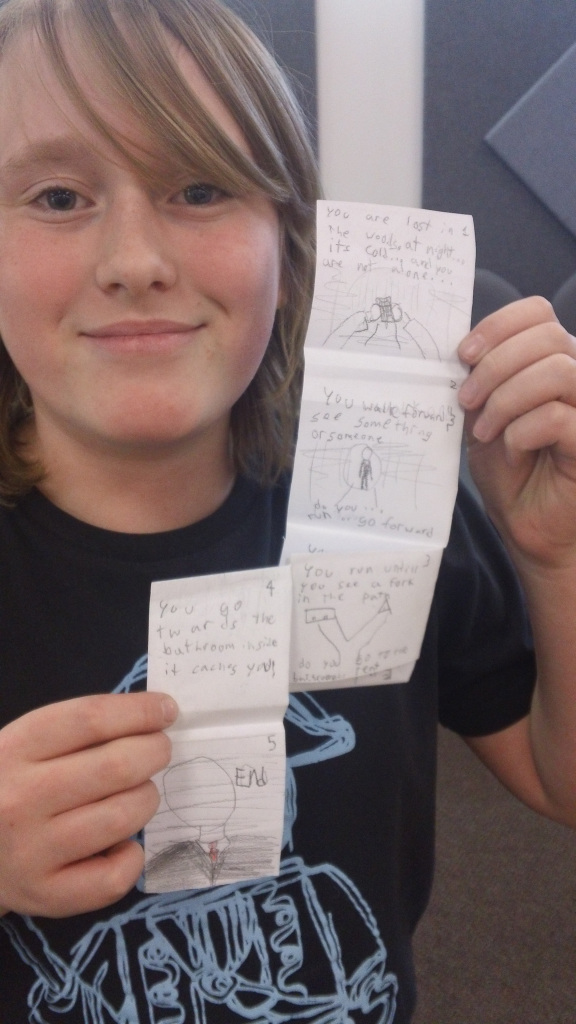 you are lost in 1
the woods at night...
its cold... and you
are not alone...
2
You walk forward
see something
or someone
do you...
run or go forward
3
You run untill
you see a fork
in the path
do you go to the
bathroom
tent
4
you go
twards the
bathroom inside
it caches you
5
END